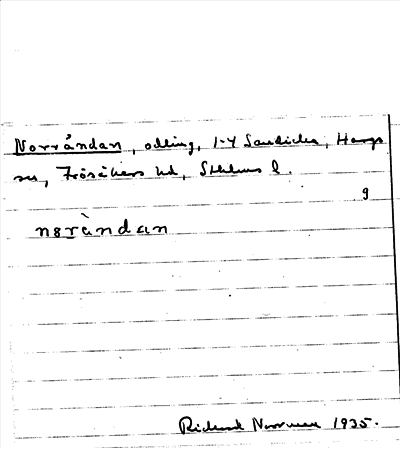 Norråndan, odling, 1-4 Sandika, Hargs
sn, Frösåkers hd, Sthlms l.
g
nɞràndan
Rickard Norrman 1935.